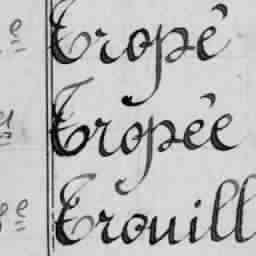 Tropé
Tropée
Trouill